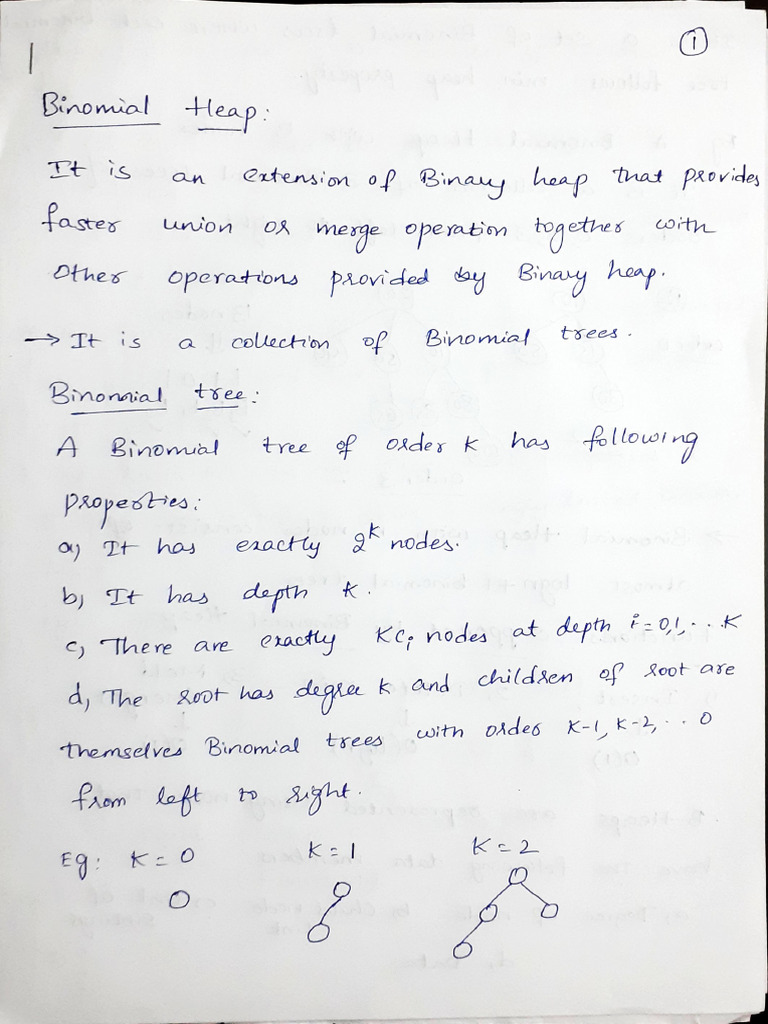 1
Binomial Heap:
It is an extension of Binary heap that provides
faster union or merge operation together with
Other operations provided by Binary heap.
→ It is a collection of Binomial trees.
Binomial tree:
A Binomial tree of order K has following
properties:
a) It has exactly 2^K nodes.
b) It has depth K.
c) There are exactly KCi nodes at depth i=0,1,...K
d) The root has degree K and children of root are
themselves Binomial trees with order K-1, K-2,..0
from left to right.
Eg: K = 0 K = 1 K = 2